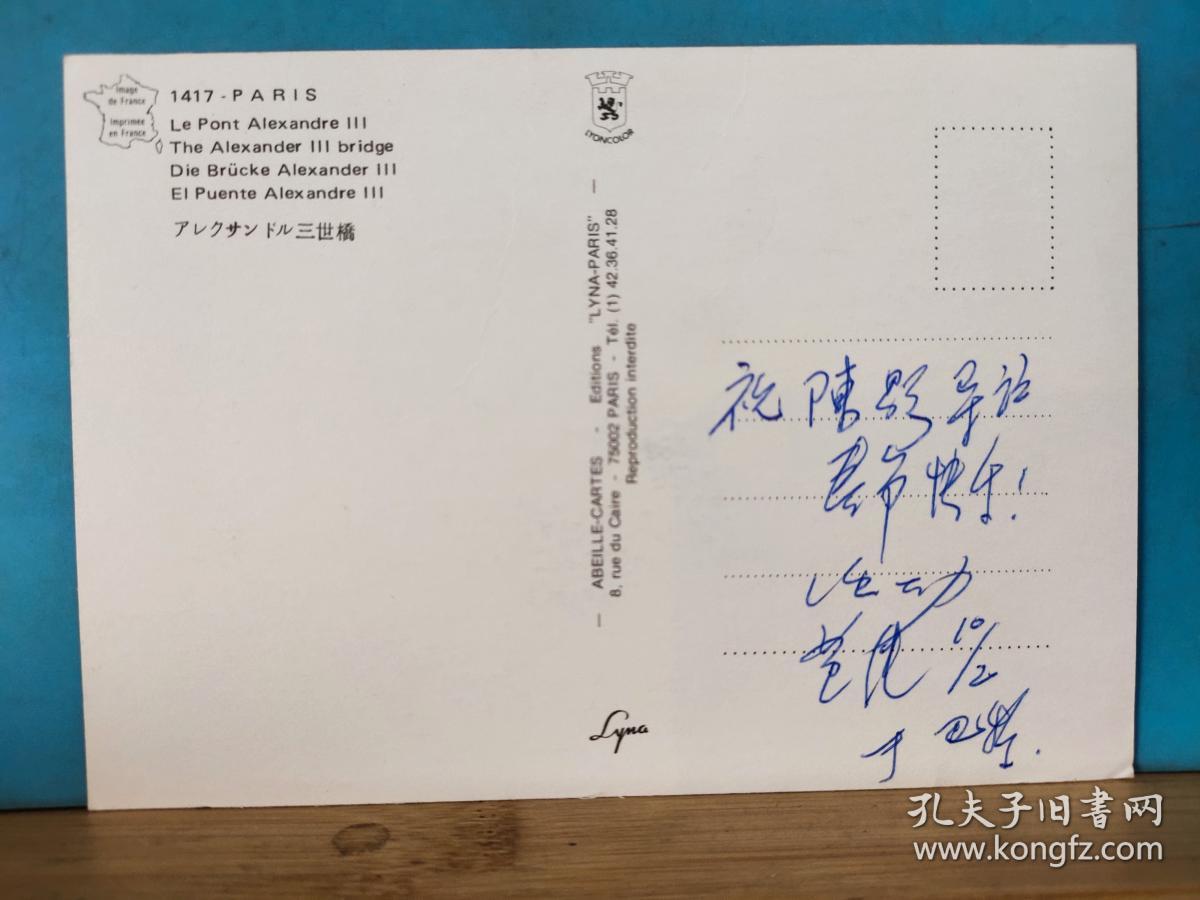 Image
de France
Imprimée
en France
1417 - PARIS
Le Pont Alexandre III
The Alexander III bridge
Die Brücke Alexander III
El Puente Alexandre III
アレクサンドル三世橋
LYONCOLOR
— ABEILLE-CARTES - Editions "LYNA-PARIS" —
8, rue du Caire - 75002 PARIS - Tél. (1) 42.36.41.28
Reproduction interdite
Lyna
祝 陳
春节快乐!
10/2
于 巴黎.
孔夫子旧書网
www.kongfz.com